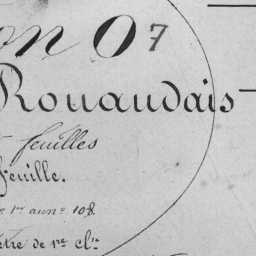 on O 7
Rouaudais
feuilles
feuille.
1er aune 108.
tre de 1re cl.